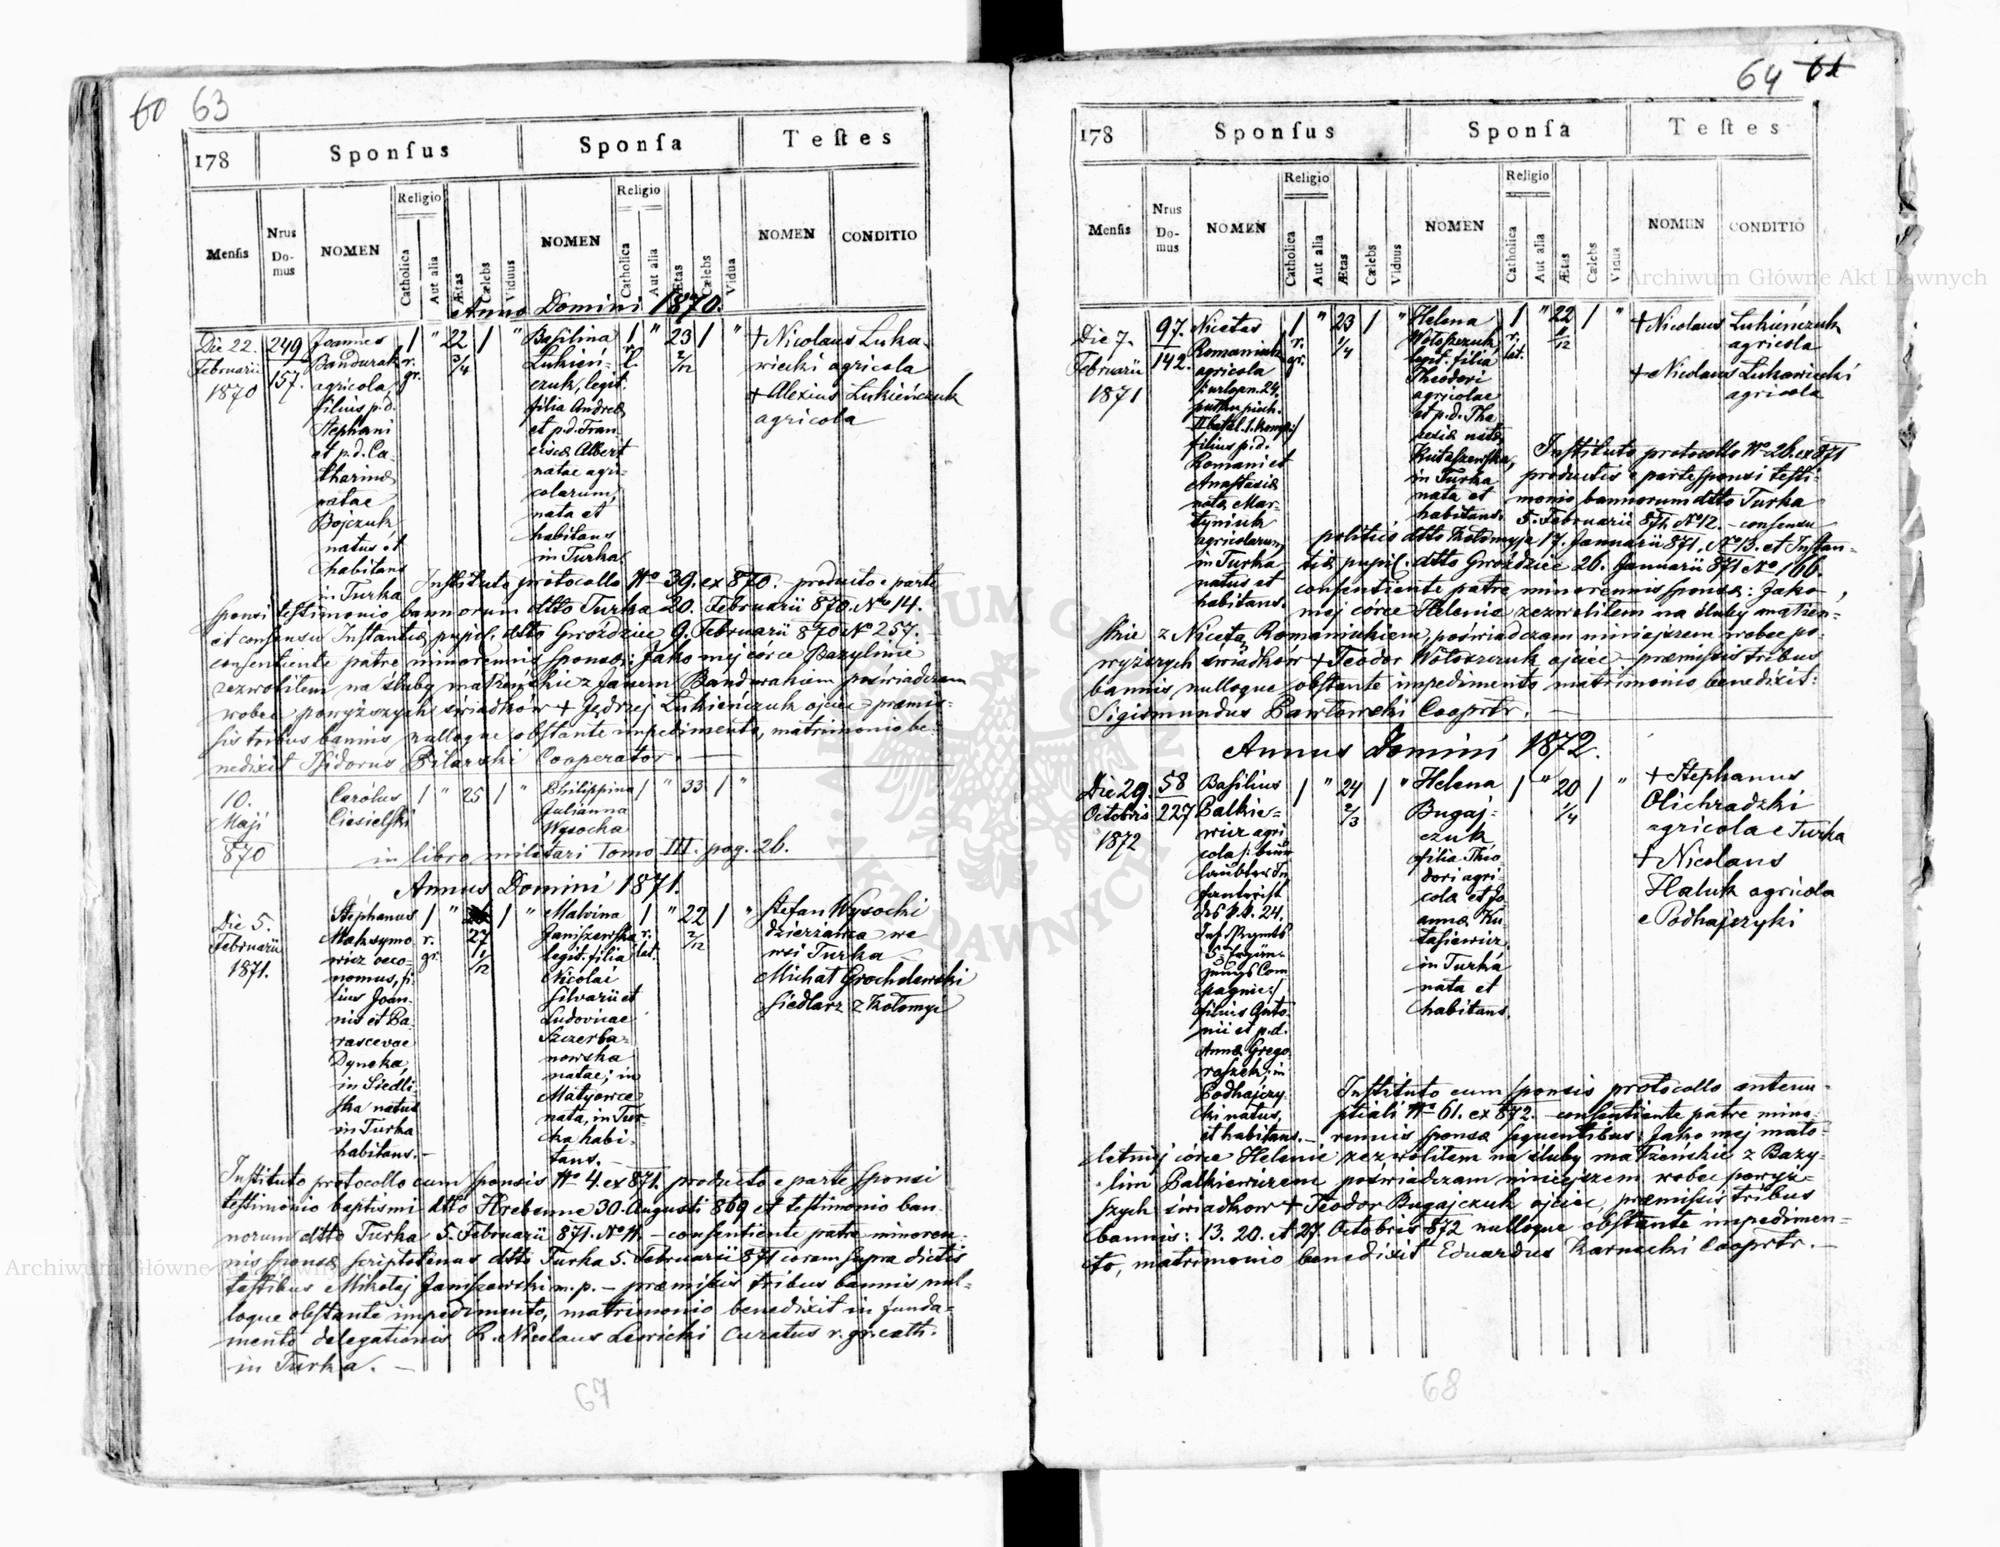 60 63
178
Sponſus
Sponſa
Teſtes
Menſis
Nrus Do-mus
NOMEN
Religio
Catholica
Aut alia
Ætas
Cælebs
Viduus
NOMEN
Religio
Catholica
Aut alia
Ætas
Cælebs
Vidua
NOMEN
CONDITIO
Anno Domini 1870.
Die 22.
Februarii
1870
249
157.
Joannes
Bandurak
agricola
filius p.d.
Stephani
et p.d. Ca-
tharinæ
natae
Bojczuk
natus et
habitans
in Turka
1 " 22 1 "
r.
gr.
3/4
Basilina
Lukień-
czuk, legit.
filia Andreæ
et p.d. Fran-
ciscæ Albert
natae agri-
colarum,
nata et
habitans
in Turka.
1 " 23 1 "
r.
l.
2/12
+ Nicolaus Luka-
wiecki agricola
+ Alexius Lukieńczuk
agricola
Instituto protocollo No 39. ex 870. producto e parte
sponsi testimonio bannorum dtto Turka 20. Februarii 870. No 14.
et consensu Instantiæ pupil. dtto Gwoździec 9. Februarii 870 No 257.
consentiente patre minorennis sponsæ: Jako mej córce Bazylinie
zezwoliłem na śluby małżeńskie z Janem Bandurakiem poświadczam
wobec powyższych świadków + Jędrzej Lukieńczuk ojciec – præmis-
sis tribus bannis nulloque obstante impedimento, matrimonio be-
nedixit Isidorus Pilarski Cooperator. —
10.
Maji
870
Carolus
Ciesielski
1 " 25 1 "
Philippina
Julianna
Wysocka
1 " 33 1 "
in libro militari Tomo III. pag. 26.
Annus Domini 1871.
Die 5.
Februarii
1871.
Stephanus
Maksymo-
wicz oeco-
nomus, fi-
lius Joan-
nis et Pa-
rascevae
Dynoka,
in Siedli-
ska natus
in Turka
habitans.–
1 " 1 "
r.
gr.
27
11/12
Malvina
Janiszewska
legit. filia
Nicolai
silvarii et
Ludovicae
Szczerba-
nowska
natae; in
Matyowce
nata, in Tur-
ka habi-
tans. –
1 " 22 1 "
r.
lat.
2/12
Stefan Wysocki
dzierżawca we
wsi Turka
Michał Grocholewski
siedlarz z Kołomyi
Instituto protocollo cum sponsis No 4. ex 871. producto e parte sponsi
testimonio baptismi dtto Hrebenne 30. Augusti 869 et testimonio ban-
norum dtto Turka 5. Februarii 871. No 11. – consentiente patre minoren-
nis sponsæ scriptotenus dtto Turka 5. Februarii 871 coram supra dictis
testibus Mikołaj Janiszewski m.p. – præmissis tribus bannis nul-
loque obstante impedimento, matrimonio benedixit in funda-
mento delegationis R. Nicolaus Lewicki Curatus r. gr. cath.
in Turka. —
67
64
178
Sponſus
Sponſa
Teſtes
Menſis
Nrus Do-mus
NOMEN
Religio
Catholica
Aut alia
Ætas
Cælebs
Viduus
NOMEN
Religio
Catholica
Aut alia
Ætas
Cælebs
Vidua
NOMEN
CONDITIO
Die 7.
Februarii
1871
97.
142.
Nicetas
Romaniuk
agricola
/: urlopn. 24.
pułku piech.
II batal. 1. komp:/
filius p.d.
Romani et
Anastasiæ
natæ Mar-
tyniuk
agricolarum,
in Turka
natus et
habitans.
1 " 23 1 "
r.
gr.
1/4
Helena
Wołoszczuk
legit. filia
Theodori
agricolae
et p.d. The-
resiæ natæ
Kutaszewska,
in Turka
nata et
habitans.
1 " 22 1 "
r.
lat.
11/12
+ Nicolaus Lukieńczuk
agricola
+ Nicolaus Lukawiecki
agricola
Instituto protocollo No 26. ex 871
productis e parte sponsi testi-
monio bannorum dtto Turka
5. Februarii 871. No 12. – consensu
politico dtto Kołomyja 17. Januarii 871. No 13. et Instan-
tiæ pupil. dtto Gwoździec 26. Januarii 871 No 166
consentiente patre minorennis sponsæ: Jako
mej córce Helenie zezwoliłem na śluby małżeń-
skie z Nicetą Romaniukiem, poświadczam niniejszem wobec po-
wyższych świadków + Teodor Wołoszczuk ojciec – præmissis tribus
bannis, nulloque obstante impedimento matrimonio benedixit:
Sigismundus Pawłowski Cooprtr. —
Annus Domini 1872.
Die 29.
Octobris
1872
58
227
Basilius
Balkie-
wicz agri
cola
24.
5.
Com
pagnie:/
filius Anto-
nii et p.d.
Annæ Grego-
raszek; in
Podhajczy-
ki natus,
et habitans.–
1 " 24 1 "
2/3
Helena
Bugaj-
czuk
filia Theo
dori agri-
colæ et Jo
annæ Ku
tasiewicz
in Turka
nata et
habitans.
1 " 20 1 "
1/4
+ Stephanus
Olichradzki
agricola e Turka
+ Nicolaus
Haluk agricola
e Podhajczyki
Instituto cum sponsis protocollo antenu-
ptiali No 61. ex 872. – consentiente patre mino-
rennis sponsæ sequentibus: Jako mej mało-
letniej córce Helenie zezwoliłem na śluby małżeńskie z Bazy-
lim Balkiewiczem poświadczam niniejszem wobec powyż-
szych świadków + Teodor Bugajczuk ojciec, præmissis tribus
bannis: 13. 20. et 27. Octobris 872 nulloque obstante impedimen-
to, matrimonio benedixit Eduardus Karnecki Cooprtr. —
68
Archiwum Główne Akt Dawnych
Archiwum Główne Akt Dawnych